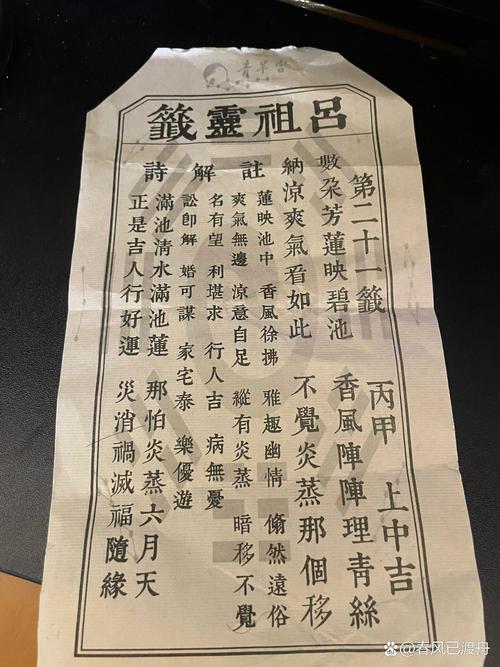 青羊宮
呂祖靈籤
第二十一籤 丙甲 上中吉
數朶芳蓮映碧池 香風陣陣理青絲
納涼爽氣看如此 不覺炎蒸那個移
註
蓮映池中 香風徐拂 雅趣幽情 翛然遠俗
爽氣無邊 涼意自足 縱有炎蒸 暗移不覺
解
名有望 利堪求 行人吉 病無憂
訟即解 婚可謀 家宅泰 樂優遊
詩
滿池清水滿池蓮 那怕炎蒸六月天
正是吉人行好運 災消禍滅福隨緣
春风已渡舟